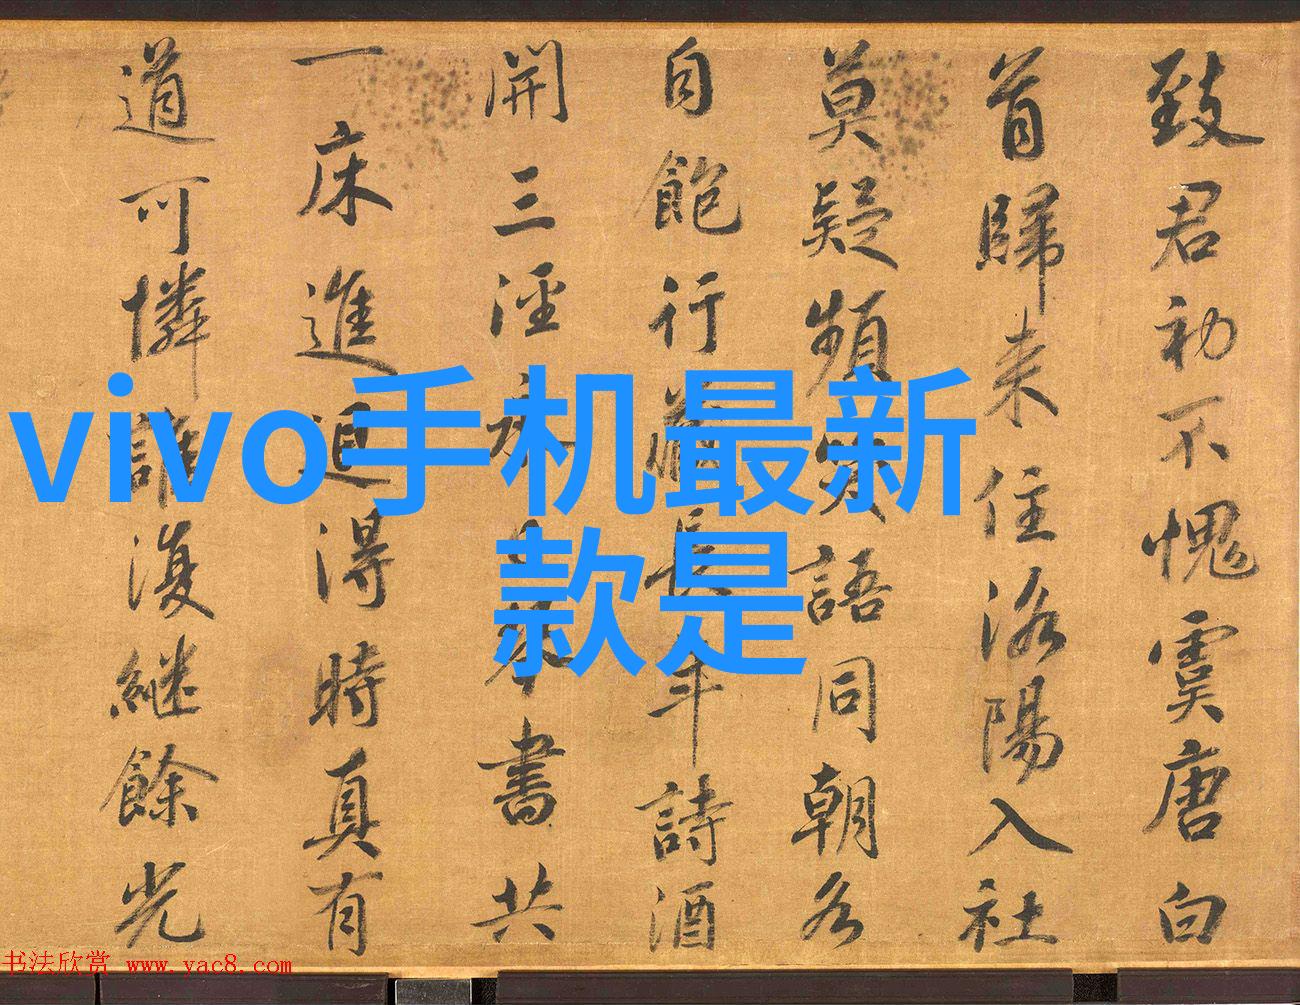 vivo手机最新
款是
致君初不愧虞唐白
首歸来住洛陽入社
莫疑頻笑語同朝各
自飽行藏長年詩酒
開三涇永日琴書共
一床進退得時真有
道可憐誰復継餘光
书法欣赏 www.yac8.com